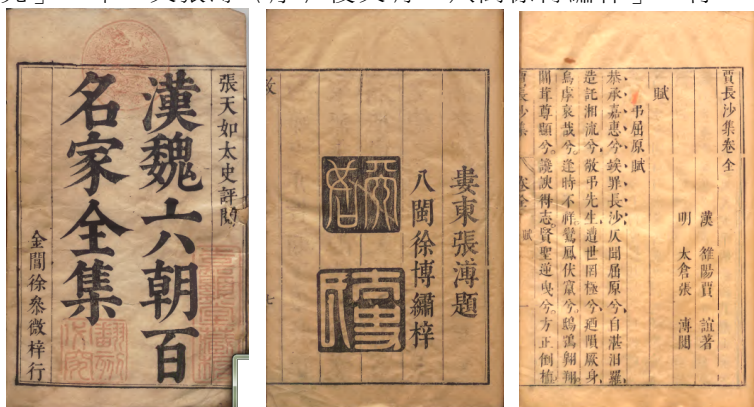 張天如太史評閱
漢魏六朝百
名家全集
金閶徐參微梓行
婁東張溥題
八閩徐博繡梓
賈長沙集卷全
漢 雒陽賈 誼著
明 太倉張 溥閱
賦
弔屈原賦
恭承嘉惠兮竢罪長沙仄聞屈原兮自湛汨羅
造託湘流兮敬弔先生遭世罔極兮迺隕厥身
烏虖哀哉兮逢時不祥鸞鳳伏竄兮鴟鴞翱翔
闒茸尊顯兮讒諛得志賢聖逆曳兮方正倒植